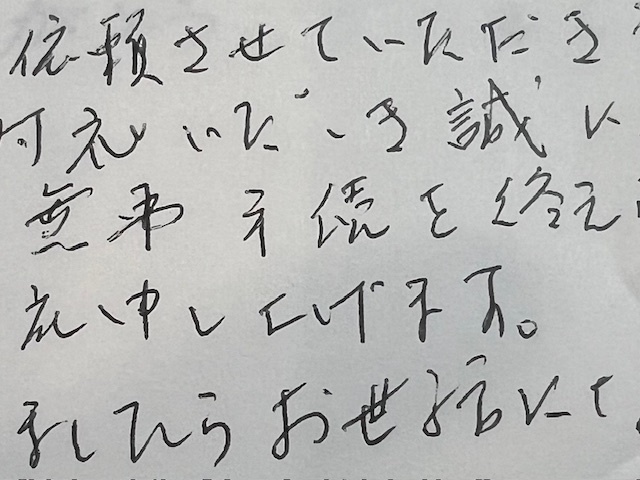 依頼させていただき
何応いただき誠に
無事手続を終え
礼申し上げます。
お世話に